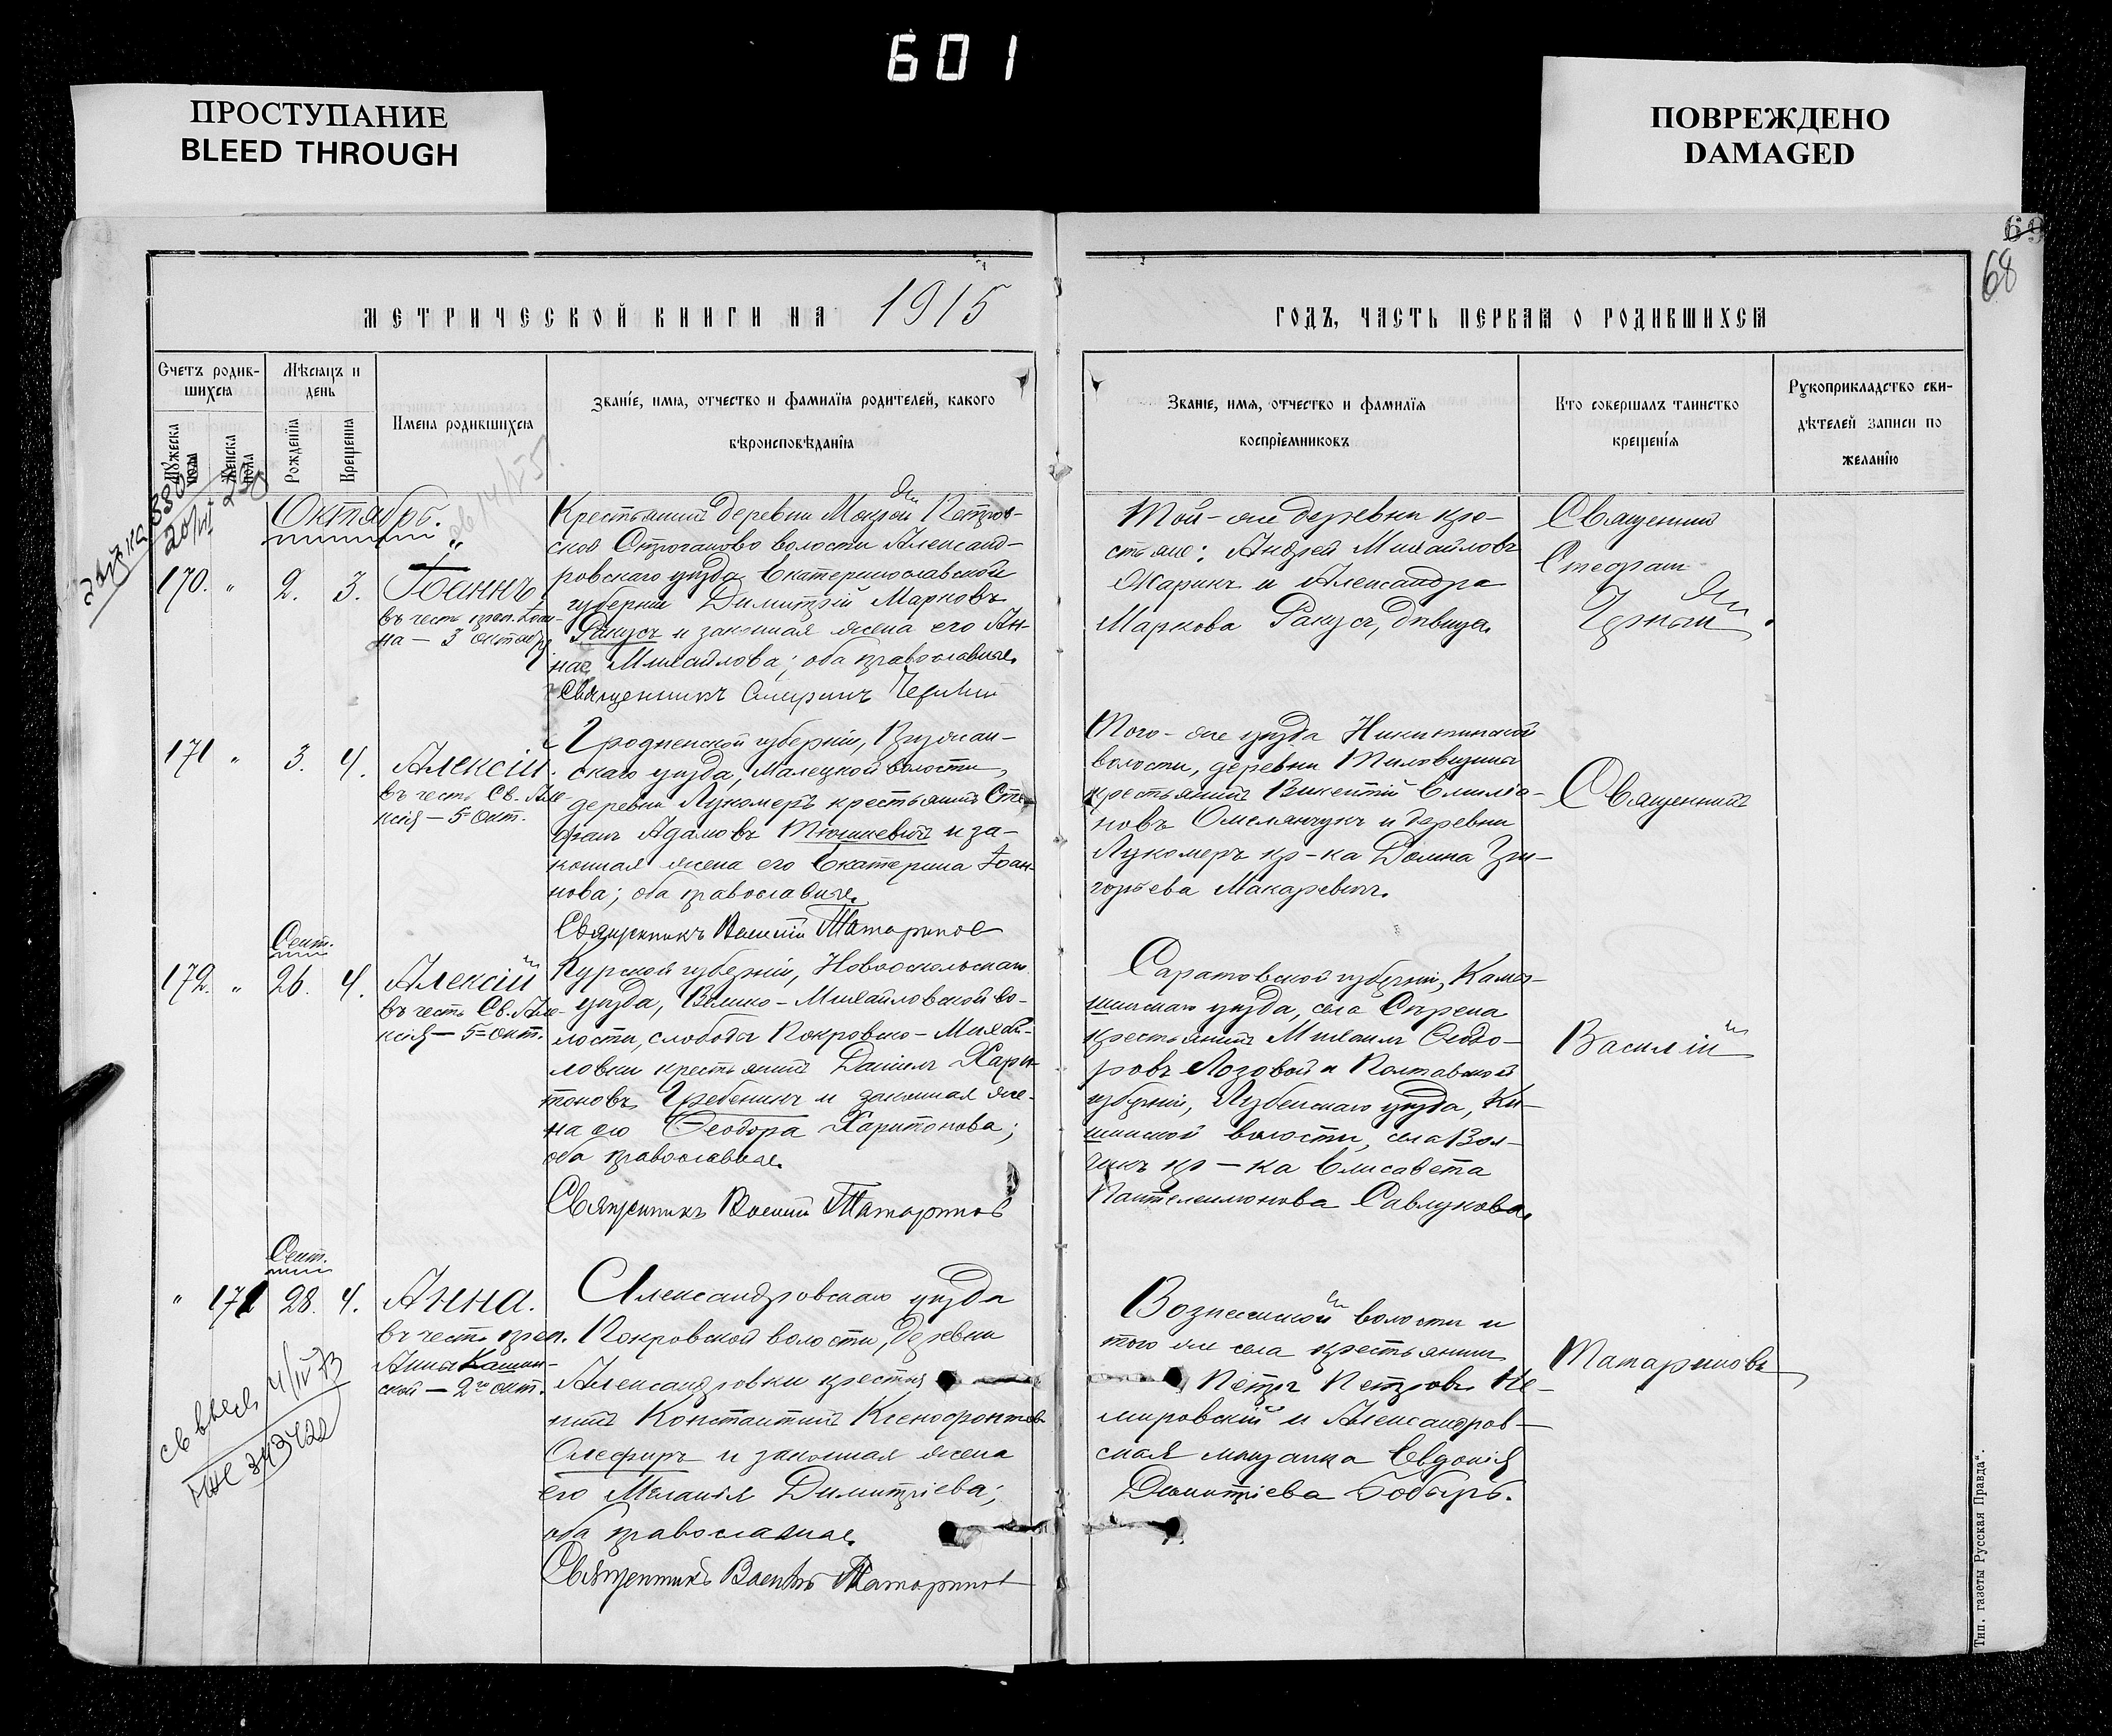 601
ПРОСТУПАНИЕ
BLEED THROUGH
ПОВРЕЖДЕНО
DAMAGED
69
68
МЕТРИЧЕСКОЙ КНИГИ НА 1915
ГОДЪ, ЧАСТЬ ПЕРВАЯ О РОДИВШИХСЯ
Счетъ родив-
шихся
Мѣсяцъ и
день
Имена родившихся
Званіе, имя, отчество и фамилія родителей, какого
вѣроисповѣданія
Званіе, имя, отчество и фамилія
воспріемниковъ
Кто совершалъ таинство
крещенія
Рукоприкладство сви-
дѣтелей записи по
желанію
Мужеска
пола
Женска
пола
Рожденія
Крещенія
Октябрь.
170. " 2. 3. Іоаннъ
въ честь преп. Іоан-
на — 3 октября
Крестьянинъ деревни Мокрой Петров-
ской волости Александ-
ровскаго уѣзда Екатеринославской
губерніи Димитрій Марковъ
Ракусъ и законная жена его Ан-
на Михайлова; оба православные.
Священникъ Стефанъ Черный
Той-же деревни кре-
стьяне: Андрей Михайловъ
Жаринъ и Александра
Маркова Ракусъ, дѣвица.
Священникъ
Стефанъ
Черный.
171 " 3. 4. Алексій.
въ честь Св. Але-
ксія — 5 окт.
Гродненской губерніи, Пружан-
скаго уѣзда, Малецкой волости,
деревни Лукомеръ крестьянинъ Сте-
фанъ Адамовъ Тюшкевичъ и за-
конная жена его Екатерина Іоан-
нова; оба православные.
Священникъ Василій Татариновъ
Того-же уѣзда
волости, деревни
крестьянинъ Викентій
новъ Омелянчукъ и деревни
Лукомеръ кр-ка Домна Гри-
горьева Макаревичъ.
Священникъ
Сент.
172. " 26. 4. Алексій
въ честь Св. Але-
ксія — 5 окт.
Курской губерніи, Новооскольскаго
уѣзда, Велико-Михайловской во-
лости, слободы Покровско-Михай-
ловки крестьянинъ Даніилъ Хари-
тоновъ Гребеникъ и законная же-
на его Ѳеодора Харитонова;
оба православные.
Священникъ Василій Татариновъ
Саратовской губерніи, Камы-
шинскаго уѣзда, села
крестьянинъ Михаилъ Ѳеодо-
ровъ Лозовой и Полтавской
губерніи, Лубенскаго уѣзда,
волости, села
кр-ка Елисавета
Пантелеимонова Савлукова.
Василій
Сент.
" 171 28. 4. Анна.
въ честь преп.
Анны Кашин-
ской — 2го окт.
Александровскаго уѣзда
Покровской волости, деревни
Александровки крестья-
нинъ Константинъ Ксенофонтовъ
Олефиръ и законная жена
его Меланія Димитріева;
оба православные.
Священникъ Василій Татариновъ
Вознесенской волости и
того же села крестьянинъ
Петръ Петровъ Не-
мировскій и Александров-
ская мѣщанка Евдокія
Димитріева Бобырь.
Татариновъ
Тип. газеты Русская Правда".